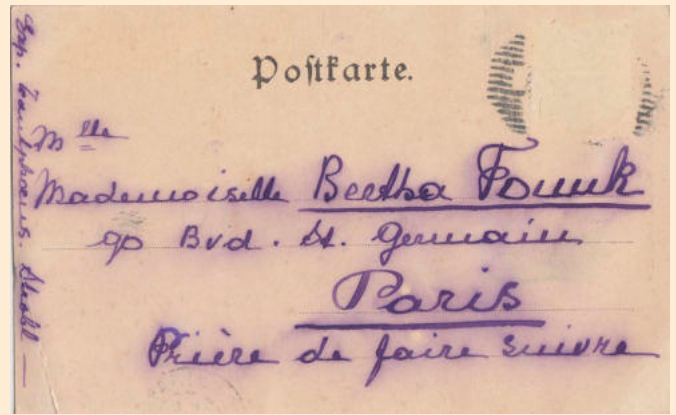 Postkarte.
Mlle
Mademoiselle Bertha
90 Bvd. St. Germain
Paris
Prière de faire suivre
Exp.